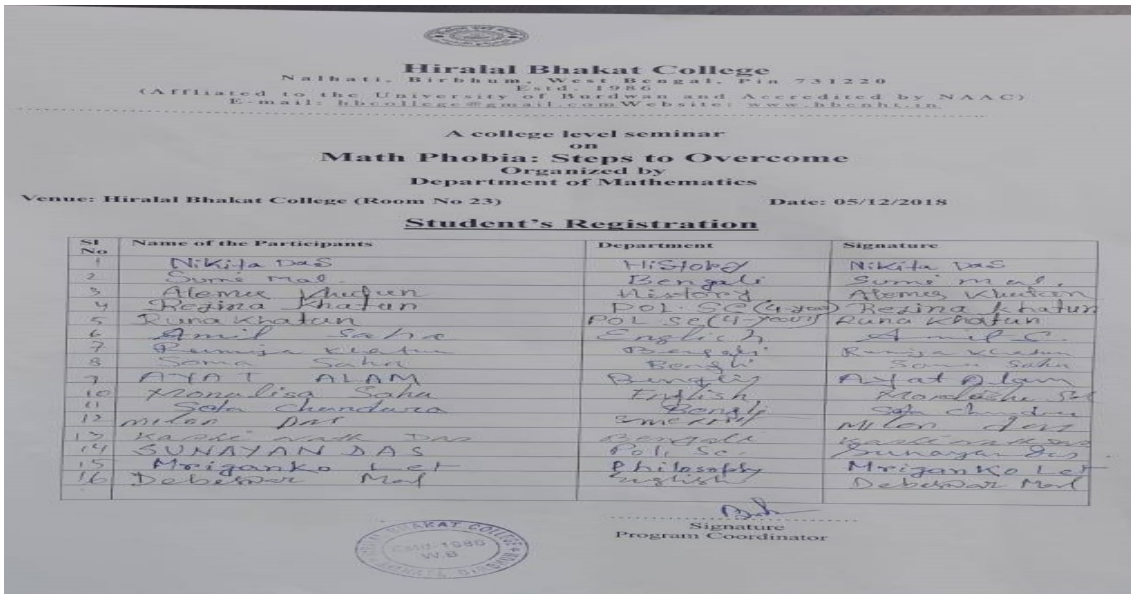 Hiralal Bhakat College
Nalhati, Birbhum, West Bengal, Pin 731220
Estd. 1986
(Affiliated to the University of Burdwan and Accredited by NAAC)
E-mail: hbcollege@gmail.comWebsite: www.hbcnht.in
A college level seminar
on
Math Phobia: Steps to Overcome
Organized by
Department of Mathematics
Venue: Hiralal Bhakat College (Room No 23) Date: 05/12/2018
Student's Registration
Sl No Name of the Participants Department Signature
1 Nikita Das History Nikita Das
2 Sumi Mal. Bengali Sumi Mal.
3 Khatun History Khatun
4 Rezina Khatun POL SC (4-year) Rezina Khatun
5 Runa Khatun POL SC (4-year) Runa Khatun
6 Amil Saha English Amil S.
7 Khatun Bengali Khatun
8 Soma Saha Bengli Soma Saha
9 AYAT ALAM Ayat Alam
10 Monalisa Saha English
11 Chandura Bengli
12 Milon Das Milon
13 Das Bengali
14 SUNAYAN DAS Poli Sc. Sunayan Das
15 Mriganko Let Philosophy Mriganko Let
16 Mal English Mal
Signature
Program Coordinator
BHAKAT COLLEGE
Estd.-1986
W.B